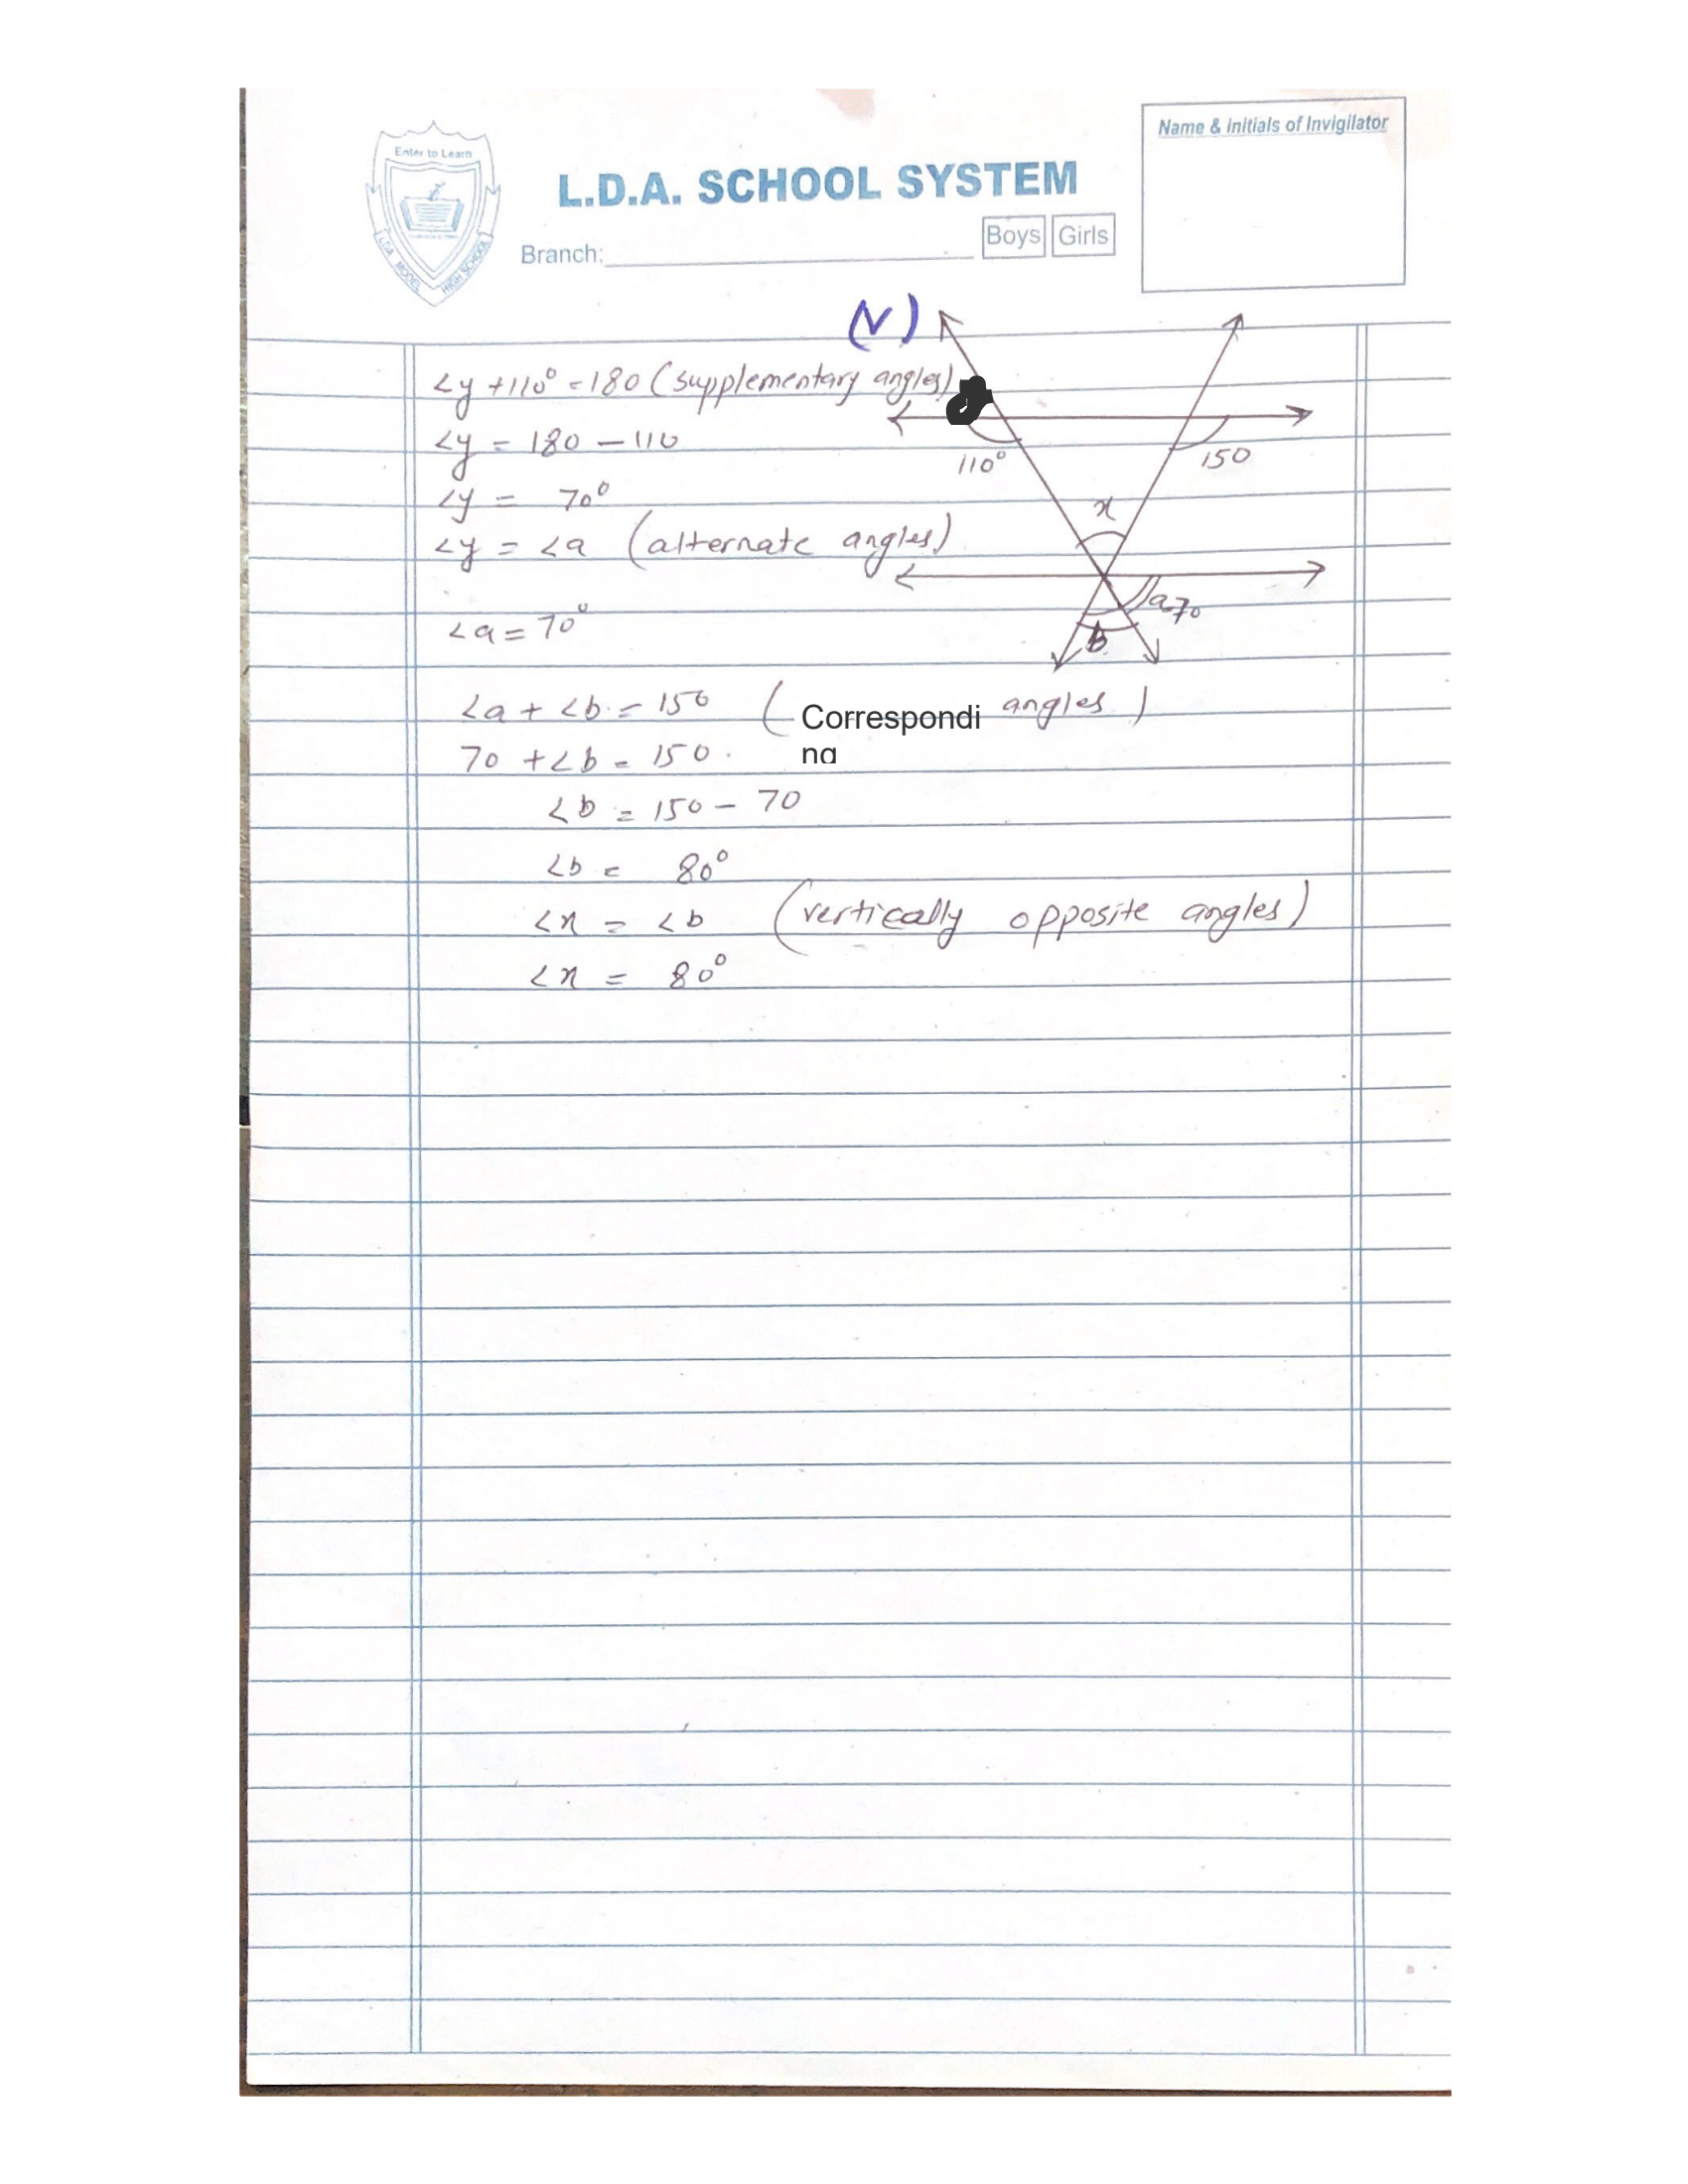 Enter to Learn
L.D.A. MODEL HIGH SCHOOL
L.D.A. SCHOOL SYSTEM
Branch:
Boys Girls
Name & initials of Invigilator
(V)
<y +110° = 180 (supplementary angles)
<y = 180 - 110
<y = 70°
<y = <a (alternate angles)
<a = 70°
110°
150
x
a 70
b
<a + <b = 150 (Correspondi angles)
ng
70 + <b = 150.
<b = 150 - 70
<b = 80°
<x = <b (vertically opposite angles)
<x = 80°